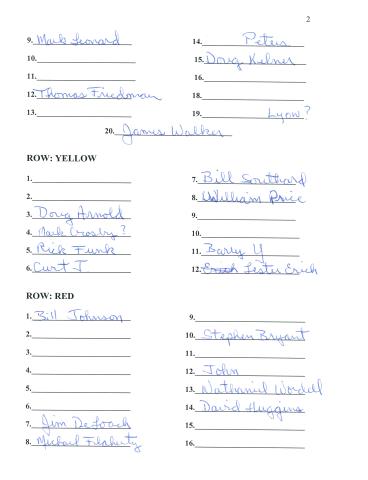 2
9. Mark Leonard 14. Peters
10. 15. Doug Kelner
11. 16.
12. Thomas Friedman 18.
13. 19. Lyow?
20. James Walker
ROW: YELLOW
1. 7. Bill Southard
2. 8. William Price
3. Doug Arnold 9.
4. Mark Crosby? 10.
5. Rick Funk 11. Barry Y
6. Curt J. 12. Erich Lester Erich
ROW: RED
1. Bill Johnson 9.
2. 10. Stephen Bryant
3. 11.
4. 12. John
5. 13. Nathaniel Wordell
6. 14. David Huggins
7. Jim DeLoach 15.
8. Michael Flaherty 16.